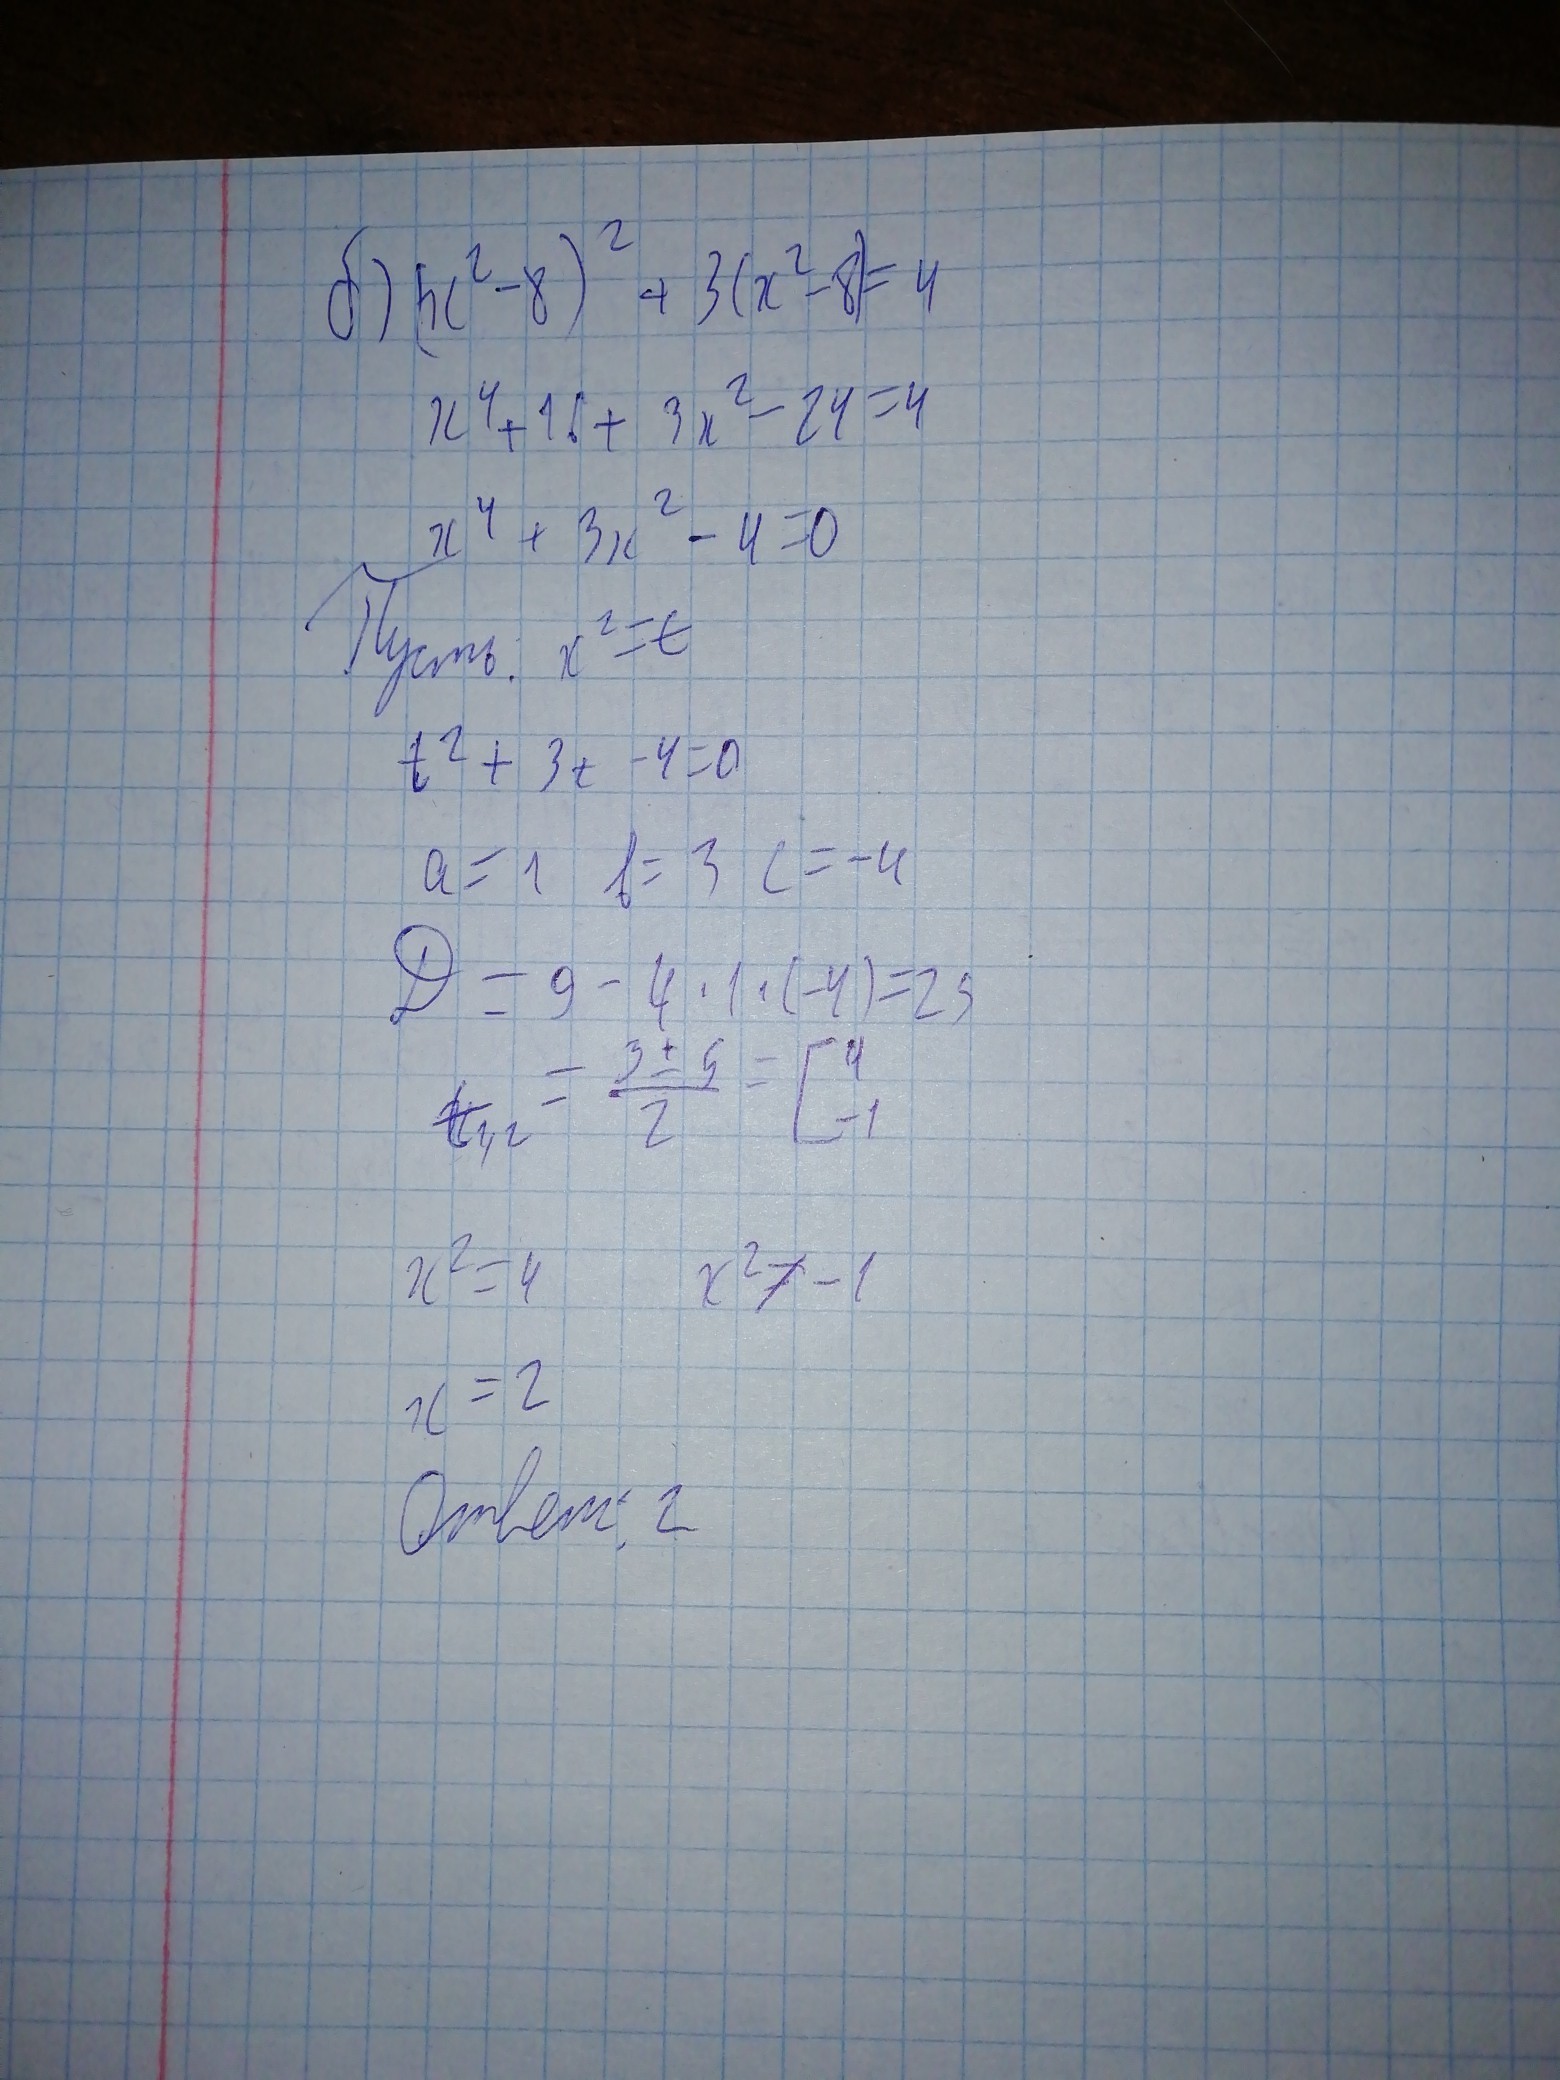 б) (x²-8)² + 3(x²-8)=4
x⁴+16+ 3x²-24=4
x⁴ + 3x² - 4=0
Пусть: x²=t
t² + 3t -4=0
a=1 b=3 c=-4
D = 9 - 4·1·(-4)=25
t₁,₂ = (3±5)/2 = [4 -1
x²=4 x²≠-1
x=2
Ответ: 2